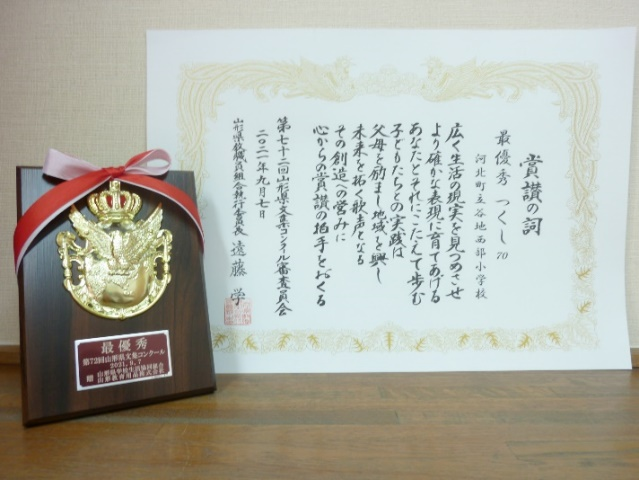 賞讃の詞
最優秀 つくし 70
河北町立谷地西部小学校
広く生活の現実を見つめさせ
より確かな表現に育てあげる
あなたとそれにこたえて歩む
子どもたちとの実践は
父母を励まし地域を興し
未来を拓く歌声となる
その創造への営みに
心からの賞讃の拍手をおくる
第七十二回山形県文集コンクール審査員会
二〇二一年九月七日
山形県教職員組合執行委員長 遠藤 学
最優秀
第72回山形県文集コンクール
2021.9.7
贈 山形県学校生活協同組合
山形教育用品株式会社